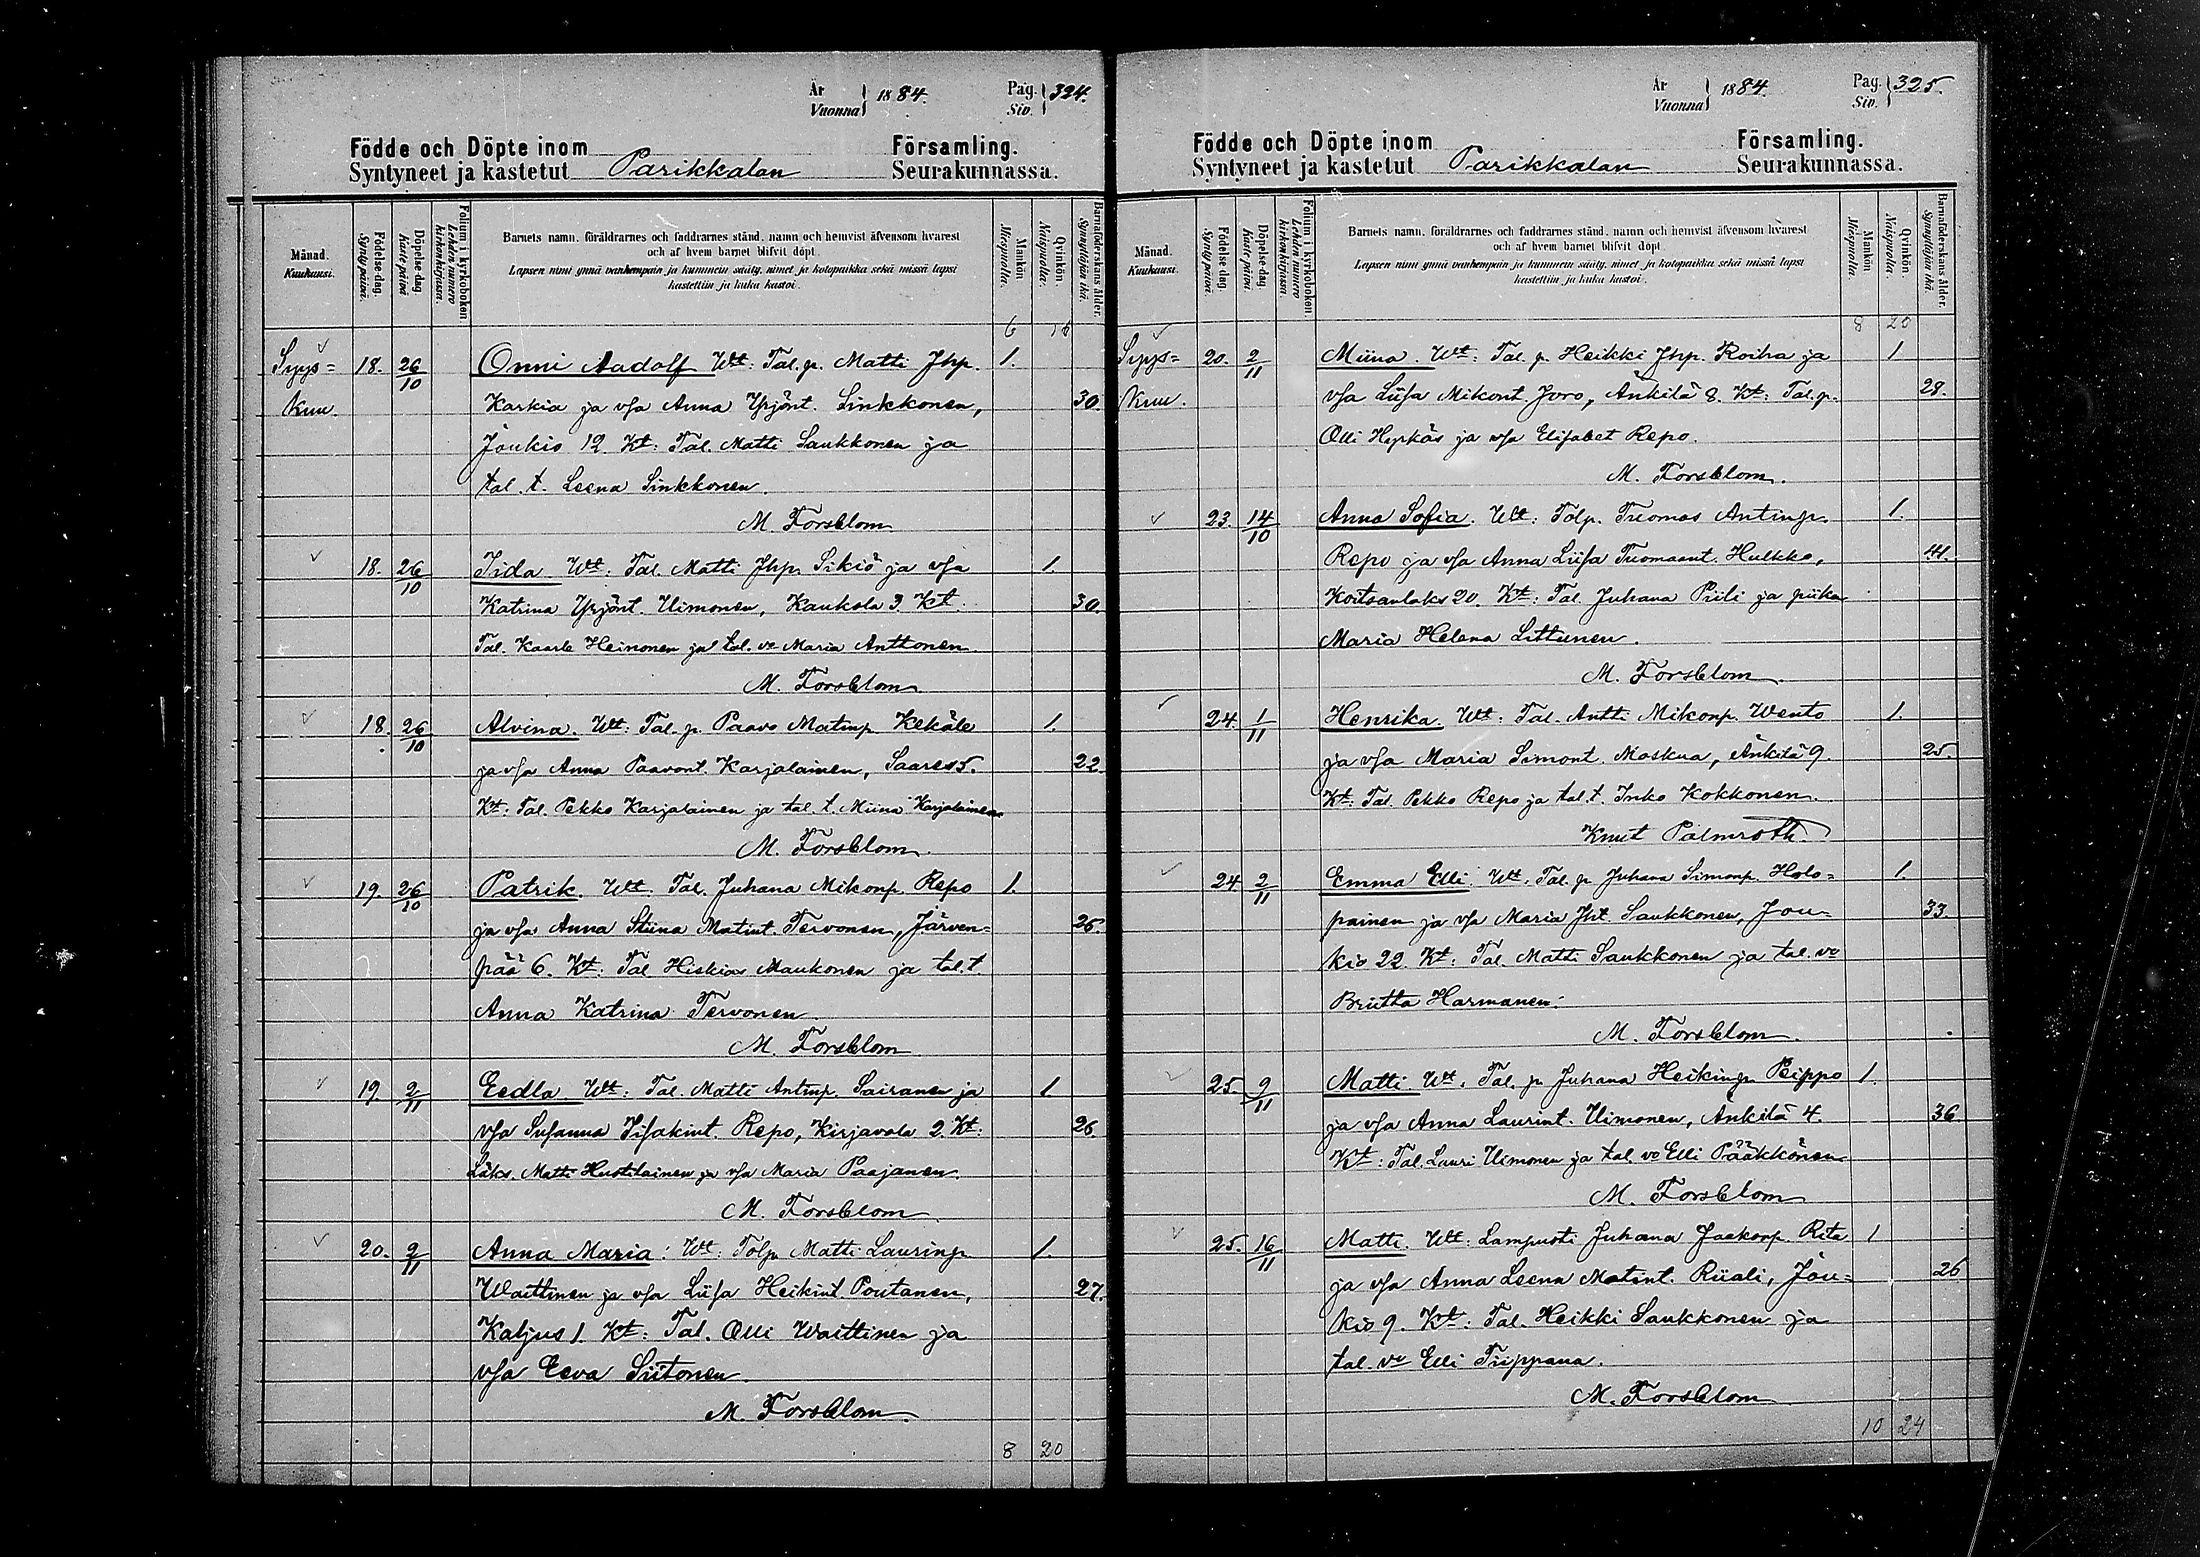 År
Vuonna } 1884.
Pag.
Siv. } 324.
Födde och Döpte inom Församling.
Syntyneet ja kastetut Parikkalan Seurakunnassa.
Månad.
Kuukausi.
Födelse-dag.
Syntypäivä.
Döpelse-dag
Kaste päivä
Folium i kyrkoboken
Lehden numero
kirkonkirjassa.
Barnets namn, föräldrarnes och faddrarnes stånd, namn och hemvist äfvensom hvarest
och af hvem barnet blifvit döpt.
Lapsen nimi ynnä vanhempain ja kummein sääty, nimet ja kotopaikka sekä missä lapsi
kastettiin ja kuka kastoi.
Mankön
Miespuolia.
Qvinkön.
Naispuolia.
Barnaföderskans ålder.
Synnyttäjän ikä.
6 16
Syys= 18. 26/10 Onni Aadolf Wt: Tal. p. Matti Jhp. 1.
kuu. Karkia ja vsa Anna Yrjönt. Sinkkonen, 30.
Joukio 12. Kt: Tal. Matti Saukkonen ja
tal. t. Leena Sinkkonen.
M. Forsblom
18. 26/10 Iida Wt: Tal. Matti Jhp. Sikiö ja vsa 1.
Katrina Yrjönt. Uimonen, Kaukola 3. Kt. 30.
Tal. Kaarle Heinonen ja tal. vo Maria Anttonen
M. Forsblom
18. 26/10 Alvina. Wt: Tal. p. Paavo Matinp. Kekäle 1.
ja vsa Anna Paavont. Karjalainen, Saares 5. 22.
Kt: Tal. Pekko Karjalainen ja tal. t. Miina Karjalainen
M. Forsblom.
19. 26/10 Patrik. Wt. Tal. Juhana Mikonp. Repo 1.
ja vsa Anna Stiina Matint. Tervonen, Järven= 26.
pää 6. Kt: Tal Hiskias Maukonen ja tal. t
Anna Katrina Tervonen
M. Forsblom
19. 2/11 Eedla Wt: Tal. Matti Antinp. Sairanen ja 1.
vsa Susanna Iisakint. Repo, Kirjavala 2. Kt: 26.
Läks. Matti Hustilainen ja vsa Maria Paajanen.
M. Forsblom
20. 2/11 Anna Maria: Wt: Tolp. Matti Laurinp. 1.
Waittinen ja vsa Liisa Heikint. Poutanen, 27.
Kaljus 1. Kt: Tal. Olli Waittinen ja
vsa Eeva Siitonen.
M. Forsblom.
8 20
År
Vuonna } 1884.
Pag.
Siv. } 325.
Födde och Döpte inom Församling.
Syntyneet ja kastetut Parikkalan Seurakunnassa.
Månad.
Kuukausi.
Födelse-dag.
Syntypäivä.
Döpelse-dag
Kaste päivä
Folium i kyrkoboken
Lehden numero
kirkonkirjassa.
Barnets namn, föräldrarnes och faddrarnes stånd, namn och hemvist äfvensom hvarest
och af hvem barnet blifvit döpt.
Lapsen nimi ynnä vanhempain ja kummein sääty, nimet ja kotopaikka sekä missä lapsi
kastettiin ja kuka kastoi.
Mankön
Miespuolia.
Qvinkön.
Naispuolia.
Barnaföderskans ålder.
Synnyttäjän ikä.
8 20
Syys= 20. 2/11 Miina. Wt: Tal. p. Heikki Jhp. Roiha ja 1
kuu. vsa Liisa Mikont. Juro, Änkilä 8. Kt: Tal. p. 28.
Olli Hypkäs ja vsa Elisabet Repo.
M. Forsblom.
23. 14/10 Anna Sofia. Wt: Tolp. Tuomas Antinp. 1.
Repo ja vsa Anna Liisa Tuomaant. Hulkko, 41.
Koitsanlaks 20. Kt: Tal. Juhana Piili ja piika
Maria Helena Littunen.
M. Forsblom.
24. 1/11 Henrika. Wt: Tal. Antti Mikonp. Wento 1.
ja vsa Maria Simont. Maskua, Änkilä 9. 25.
Kt: Tal. Pekko Repo ja tal. t. Inko Kokkonen.
Knut Palmroth.
24 2/11 Emma Elli. Wt. Tal. p. Juhana Simonp. Holo= 1.
painen ja vsa Maria Jht. Saukkonen, Jou= 33.
kio 22. Kt: Tal. Matti Saukkonen ja tal. vo
Briitta Harmanen.
M. Forsblom.
25. 9/11 Matti. Wt: Tal. p. Juhana Heikinp. Peippo 1.
ja vsa Anna Laurint. Uimonen, Änkilä 4. 36
Kt: Tal. Lauri Uimonen ja tal. vo Elli Pääkkönen
M. Forsblom
25. 16/11 Matti. Wt: Lampuoti Juhana Jaakonp. Rite 1
ja vsa Anna Leena Matint. Riiali, Jou= 26
kio 9. Kt: Tal. Heikki Saukkonen ja
tal. vo Elli Tiippana.
M. Forsblom
10 24